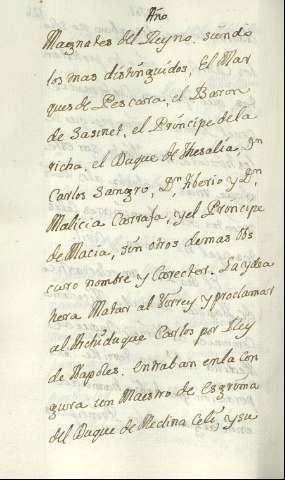 Año
Magnates del Reyno. siendo
los mas distinguidos, El Mar
ques de Pescara, el Baron
de Sasinet, el Principe de la
richa, el Duque de Thesalia, Dn
Carlos Sangro, Dn Tiberio y Dn
Malicia Carrafa, y el Principe
de Macia, sin otros demas Obs
curo nombre y Carecter. La ydea
hera Matar al Virrey y proclamar
al Archiduque Carlos por Rey
de Napoles. entraban en la Con
giura un Maestro de esgrima
del Duque de Medina Celi, y su